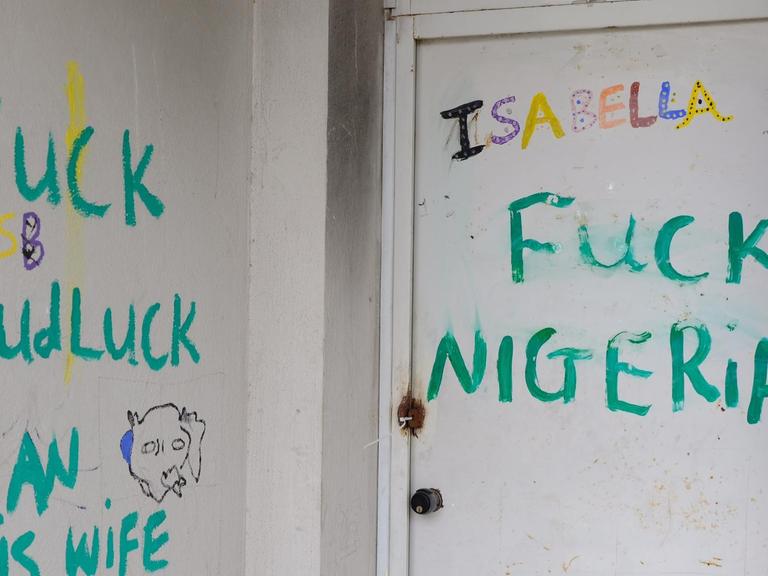 UCK
SB
UdLUCK
AN
IS WiFE
ISABELLA
FuCK
NIGERiA